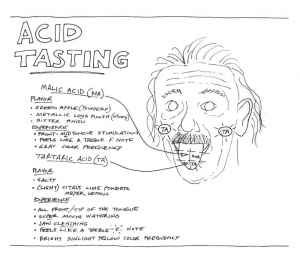 ACID
TASTING
MALIC ACID (MA)
FLAVOR
• GREEN APPLE (POWDERY)
• METALLIC LONG FINISH
• BITTER FINISH
EXPERIENCE
• FRONT-MIDTONGUE STIMULATION
• FEELS LIKE A TREBLE F NOTE
• GRAY COLOR FREQUENCY
TARTARIC ACID (TA)
FLAVOR
• SALTY
• (LIGHT) CITRUS LIME POWDER
MEYER LEMON
EXPERIENCE
• ALL FRONT/TIP OF THE TONGUE
• SUPER MOUTH WATERING
• JAW CLENCHING
• FEELS LIKE A TREBLE "E" NOTE
• BRIGHT SUNLIGHT YELLOW COLOR FREQUENCY
TA
TA
MA
TA